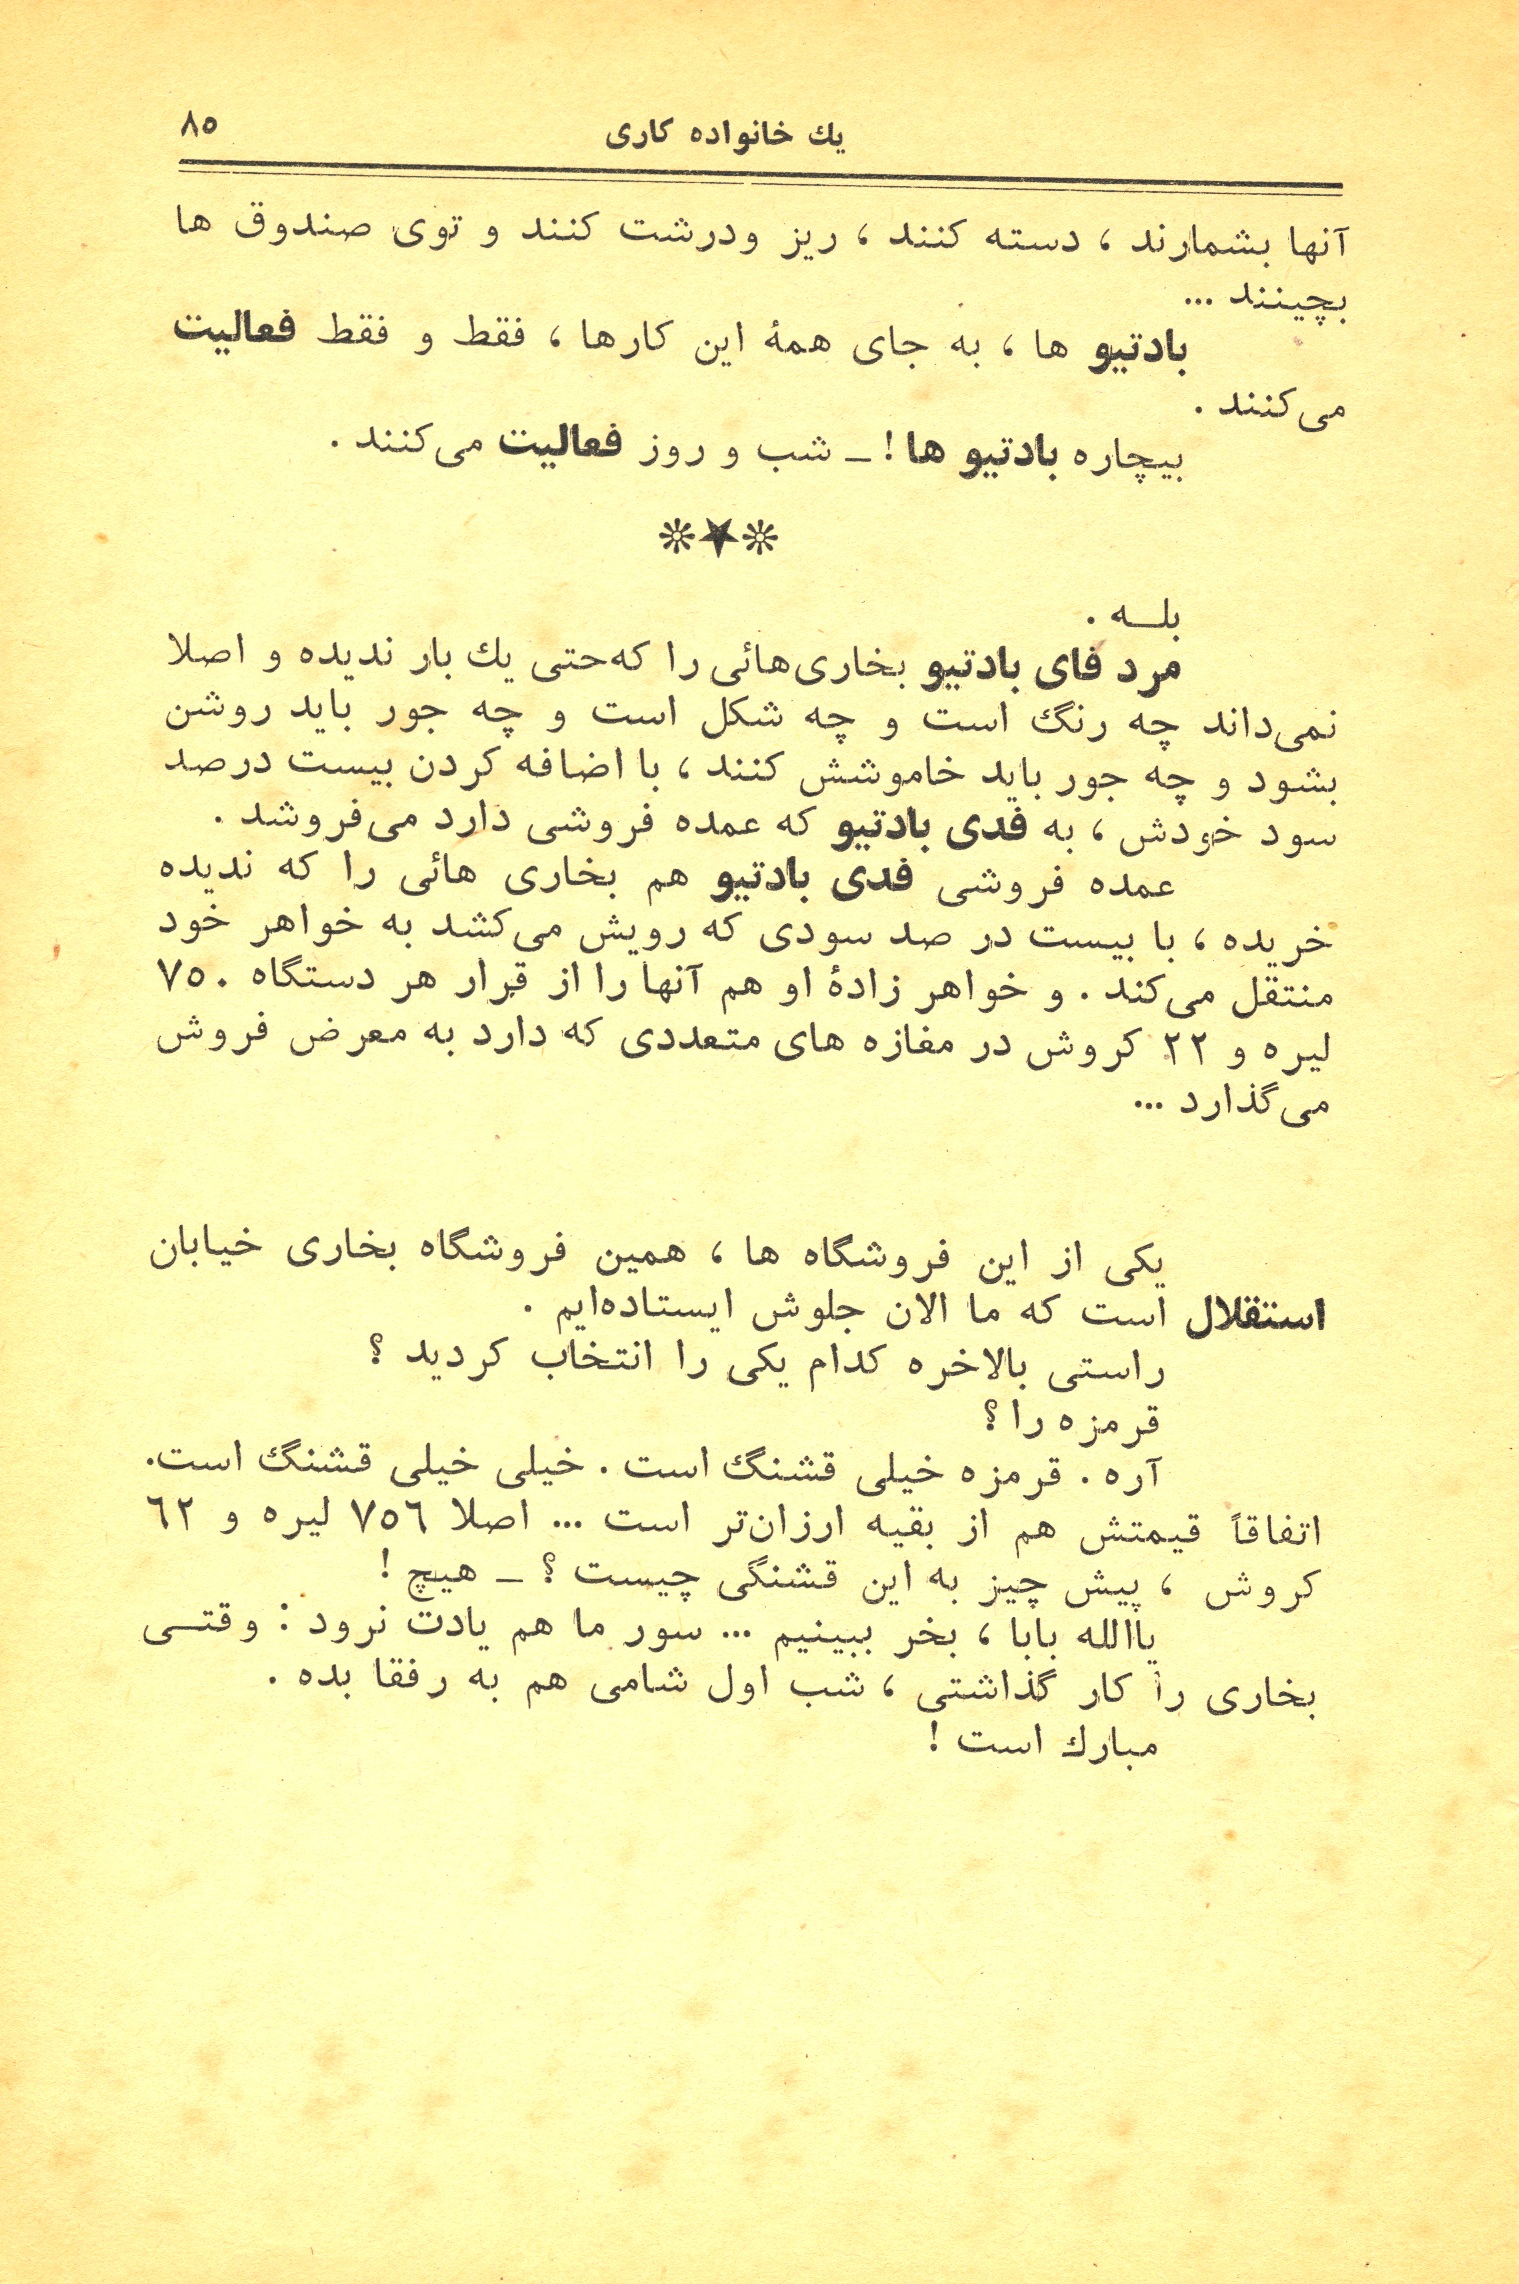 یك خانواده کاری ۸۵
آنها بشمارند ، دسته کنند ، ریز ودرشت کنند و توی صندوق ها
بچینند ...
بادتیو ها ، به جای همهٔ این کارها ، فقط و فقط فعالیت
می‌کنند .
بیچاره بادتیو ها ! ـ شب و روز فعالیت می‌کنند .
بلــه .
مرد فای بادتیو بخاری‌هائی را که‌حتی یك بار ندیده و اصلا
نمی‌داند چه رنگ است و چه شکل است و چه جور باید روشن
بشود و چه جور باید خاموشش کنند ، با اضافه کردن بیست درصد
سود خودش ، به فدی بادتیو که عمده فروشی دارد می‌فروشد .
عمده فروشی فدی بادتیو هم بخاری هائی را که ندیده
خریده ، با بیست در صد سودی که رویش می‌کشد به خواهر خود
منتقل می‌کند . و خواهر زادهٔ او هم آنها را از قرار هر دستگاه ۷۵۰
لیره و ۲۲ کروش در مغازه های متعددی که دارد به معرض فروش
می‌گذارد ...
یکی از این فروشگاه ها ، همین فروشگاه بخاری خیابان
استقلال است که ما الان جلوش ایستاده‌ایم .
راستی بالاخره کدام یکی را انتخاب کردید ؟
قرمزه را ؟
آره . قرمزه خیلی قشنگ است . خیلی خیلی قشنگ است.
اتفاقاً قیمتش هم از بقیه ارزان‌تر است ... اصلا ۷۵٦ لیره و ٦۲
کروش ، پیش چیز به این قشنگی چیست ؟ ـ هیچ !
یاالله بابا ، بخر ببینیم ... سور ما هم یادت نرود : وقتــی
بخاری را کار گذاشتی ، شب اول شامی هم به رفقا بده .
مبارك است !